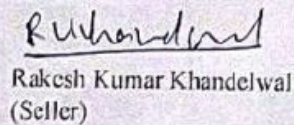 RKhandelwal
Rakesh Kumar Khandelwal
(Seller)